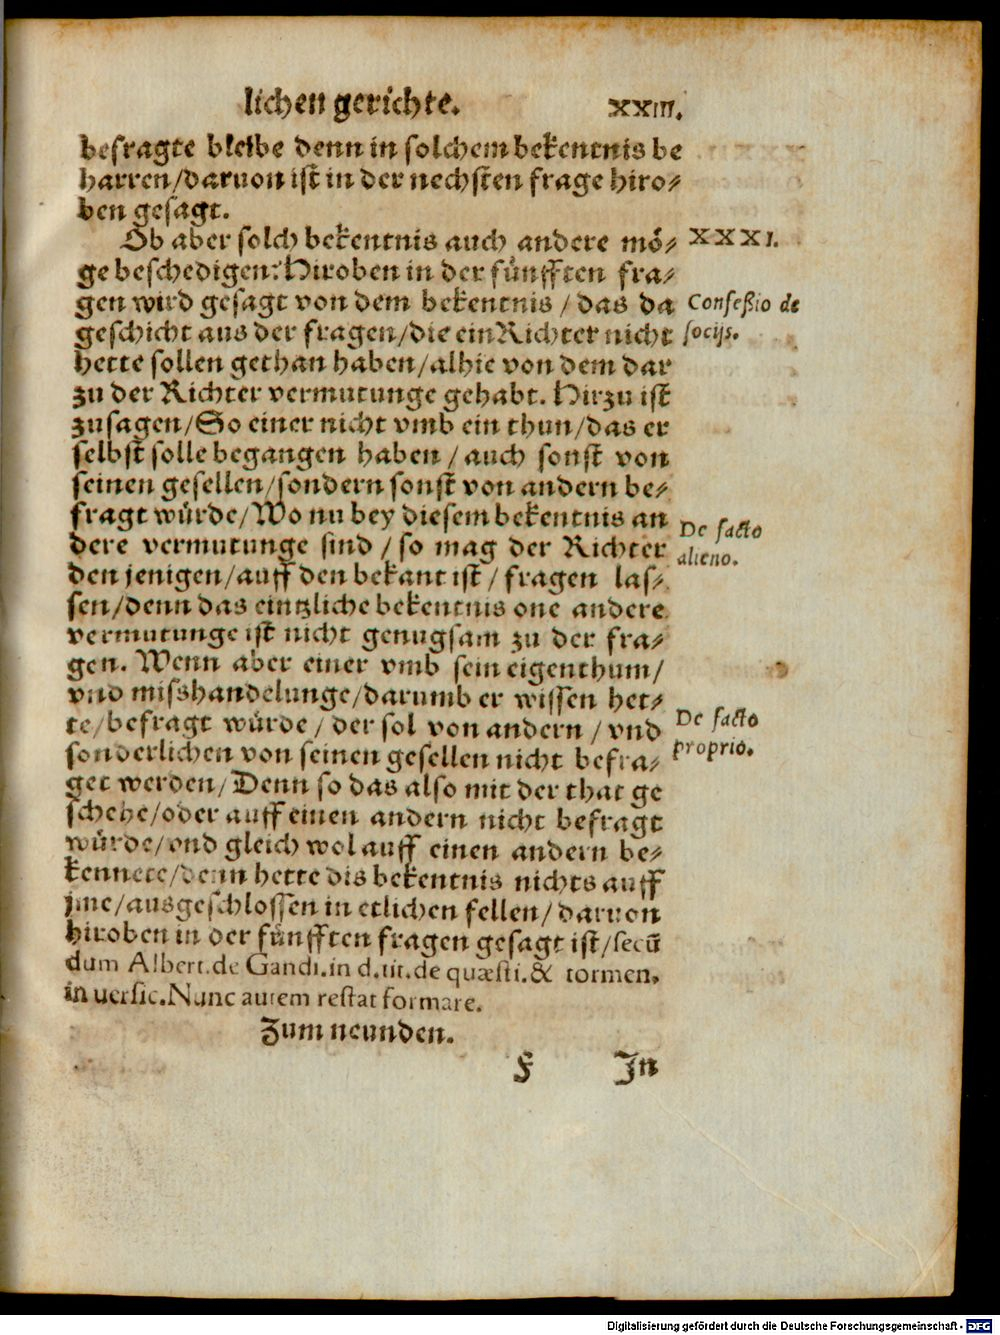 lichen gerichte. XXIII.
befragte bleibe denn in solchem bekentnis be
harren/daruon ist in der nechsten frage hiro⸗
ben gesagt.
Ob aber solch bekentnis auch andere mö⸗
XXXI.
ge beschedigen: Hiroben in der fünfften fra⸗
gen wird gesagt von dem bekentnis / das da
Confeßio de
geschicht aus der fragen/die ein Richter nicht
socijs.
hette sollen gethan haben/alhie von dem dar
zu der Richter vermutunge gehabt. Hirzu ist
zusagen/So einer nicht vmb ein thun/das er
selbst solle begangen haben / auch sonst von
seinen gesellen/sondern sonst von andern be⸗
fragt würde/Wo nu bey diesem bekentnis an
De facto
dere vermutunge sind / so mag der Richter
alieno.
den jenigen/auff den bekant ist / fragen las⸗
sen/denn das eintzliche bekentnis one andere
vermutunge ist nicht genugsam zu der fra⸗
gen. Wenn aber einer vmb sein eigenthum/
vnd misshandelunge/darumb er wissen het⸗
te/befragt würde / der sol von andern / vnd
De facto
sonderlichen von seinen gesellen nicht befra⸗
proprio.
get werden/Denn so das also mit der that ge
schehe/oder auff einen andern nicht befragt
würde/vnd gleich wol auff einen andern be⸗
kennete/denn hette dis bekentnis nichts auff
jme/ausgeschlossen in etlichen fellen/daruon
hiroben in der fünfften fragen gesagt ist/secū
dum Albert.de Gandi.in d.tit.de quæsti.& tormen,
in uersic.Nunc autem restat formare.
Zum neunden.
F Jn
Digitalisierung gefördert durch die Deutsche Forschungsgemeinschaft - DFG